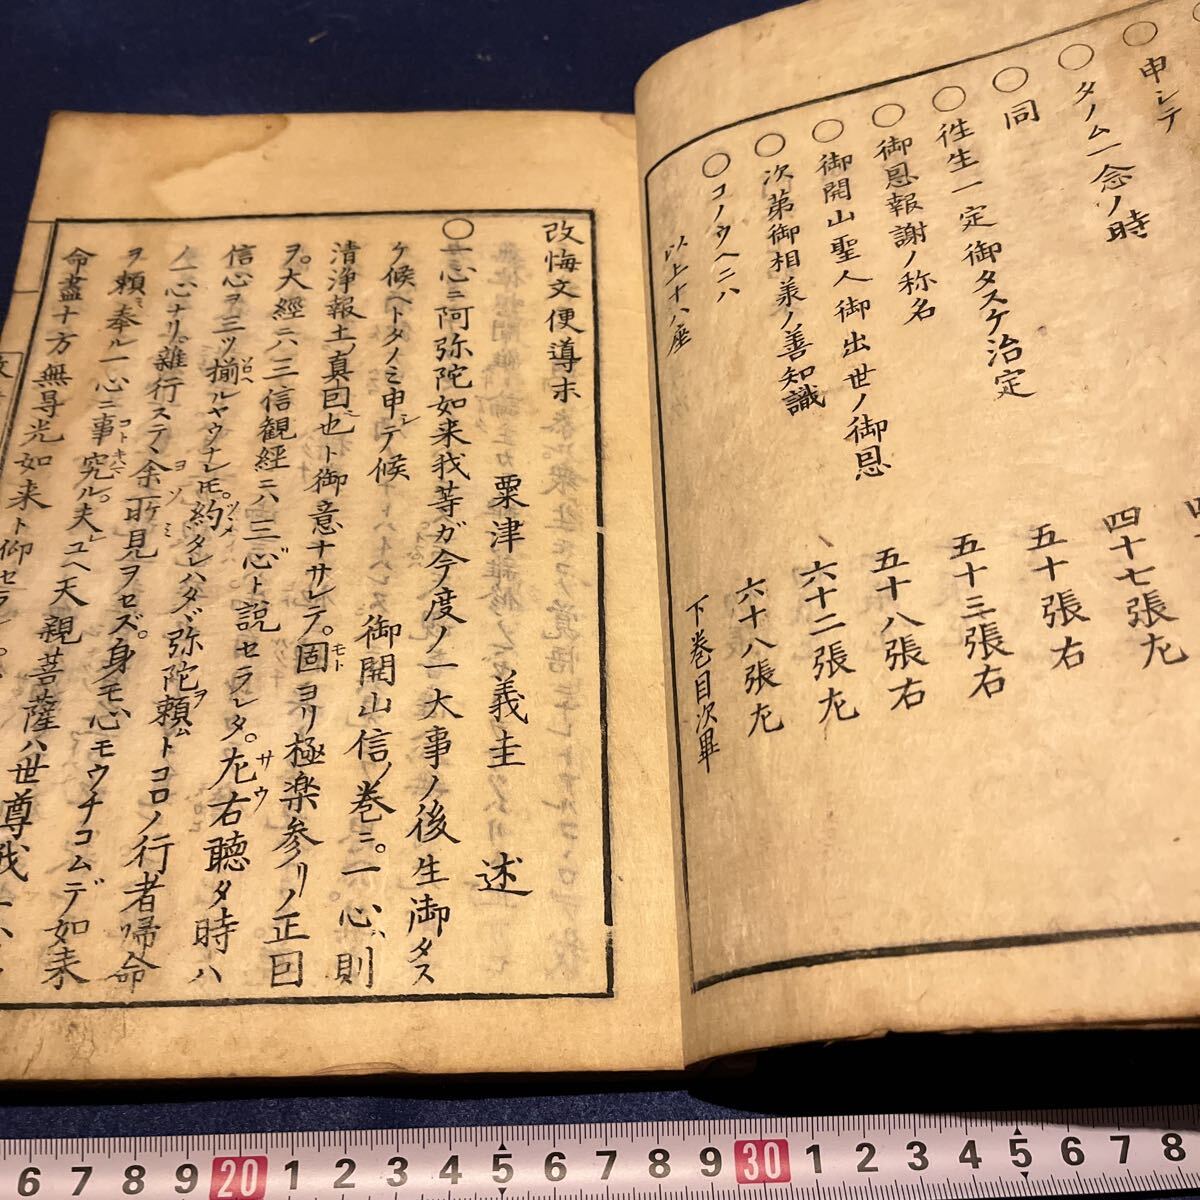 申シテ
○タノム一念ノ時
○同
○徃生一定御タスケ治定
○御恩報謝ノ称名
○御開山聖人御出世ノ御恩
○次第御相羕ノ善知識
○コノウヘニハ
以上十八座
四十七張左
五十張右
五十三張右
五十八張右
六十二張左
六十八張左
下巻目次畢
改悔文便導末
粟津 義圭 述
○一心ニ阿弥陀如来我等ガ今度ノ一大事ノ後生御タス
ケ候ヘトタノミ申シテ候 御開山信ノ巻ニ。一心ハ則
清浄報土ノ真因也ト御意ナサレテ。固ヨリ極楽参リノ正因
ヲ。大經ニハ三信観經ニハ三心ト説セラレタ。左右聴タ時ハ
信心ヲ三ツ揃ルヤウナレ𪜈。約タレハタヾ弥陀頼ムトコロノ
一心ナリ。雜行ステヽ余所見ヲセズ。身モ心モウチコムデ如来
ヲ頼ミ奉ル一心ニ事究ル。夫レユヘ天親菩薩ハ世尊我一心
命盡十方無㝵光如来ト仰セラレ
6 7 8 9 20 1 2 3 4 5 6 7 8 9 30 1 2 3 4 5 6 7 8